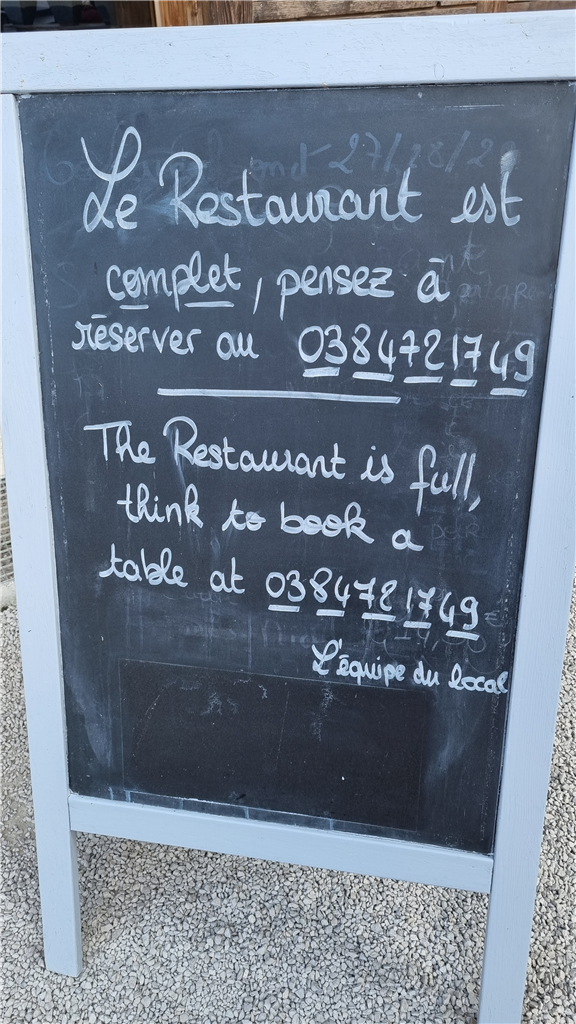 Le Restaurant est
complet, pensez à
réserver au 0384721749
The Restaurant is full,
think to book a
table at 0384721749
L'équipe du local